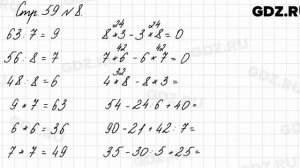 Стр. 59 № 8.
GDZ.RU
63 : 7 = 9
56 : 8 = 7
48 : 8 = 6
9 * 7 = 63
6 * 6 = 36
7 * 7 = 49
24 24
8 * 3 - 3 * 8 = 0
42 42
7 * 6 - 6 * 7 = 0
32
4 * 8 - 8 * 3 =
54 - 24 : 6 + 40 =
90 - 21 + 42 : 7 =
35 - 30 : 5 + 25 =